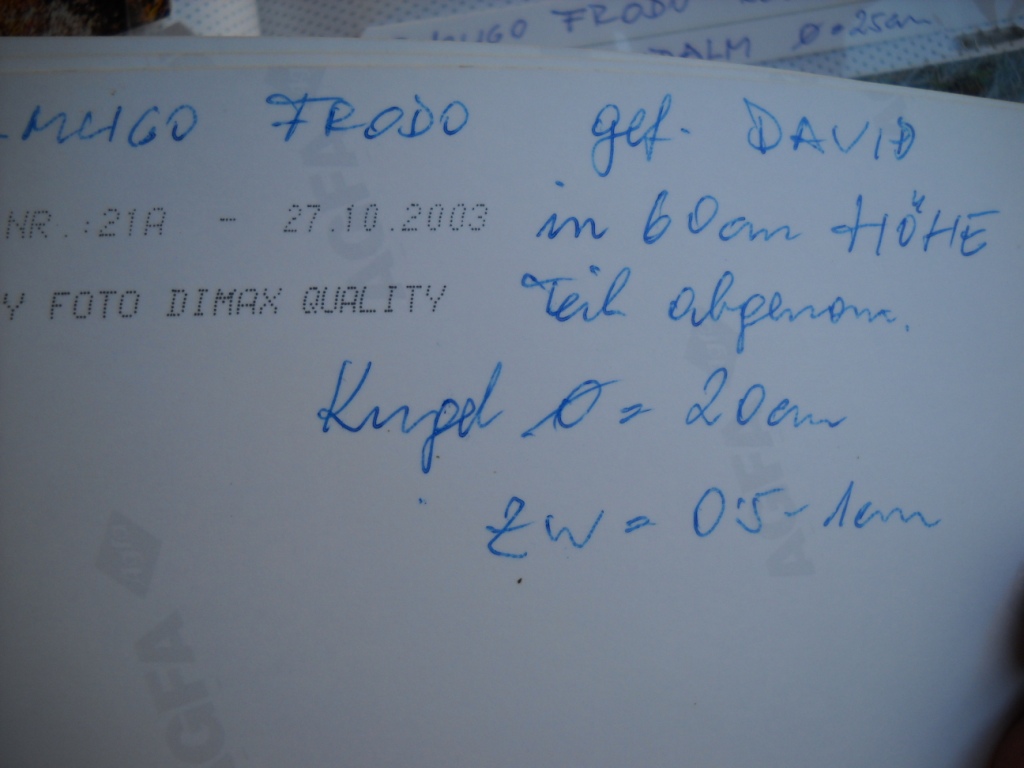 MUGO FRODO
ALM Ø=25cm
MUGO FRODO gef. DAVID
NR.:21A - 27.10.2003 in 60cm HÖHE
Y FOTO DIMAX QUALITY Teil abgenom.
Kugel Ø = 20cm
ZW = 0.5-1cm
AGFA
AGFA
AGFA
AGFA